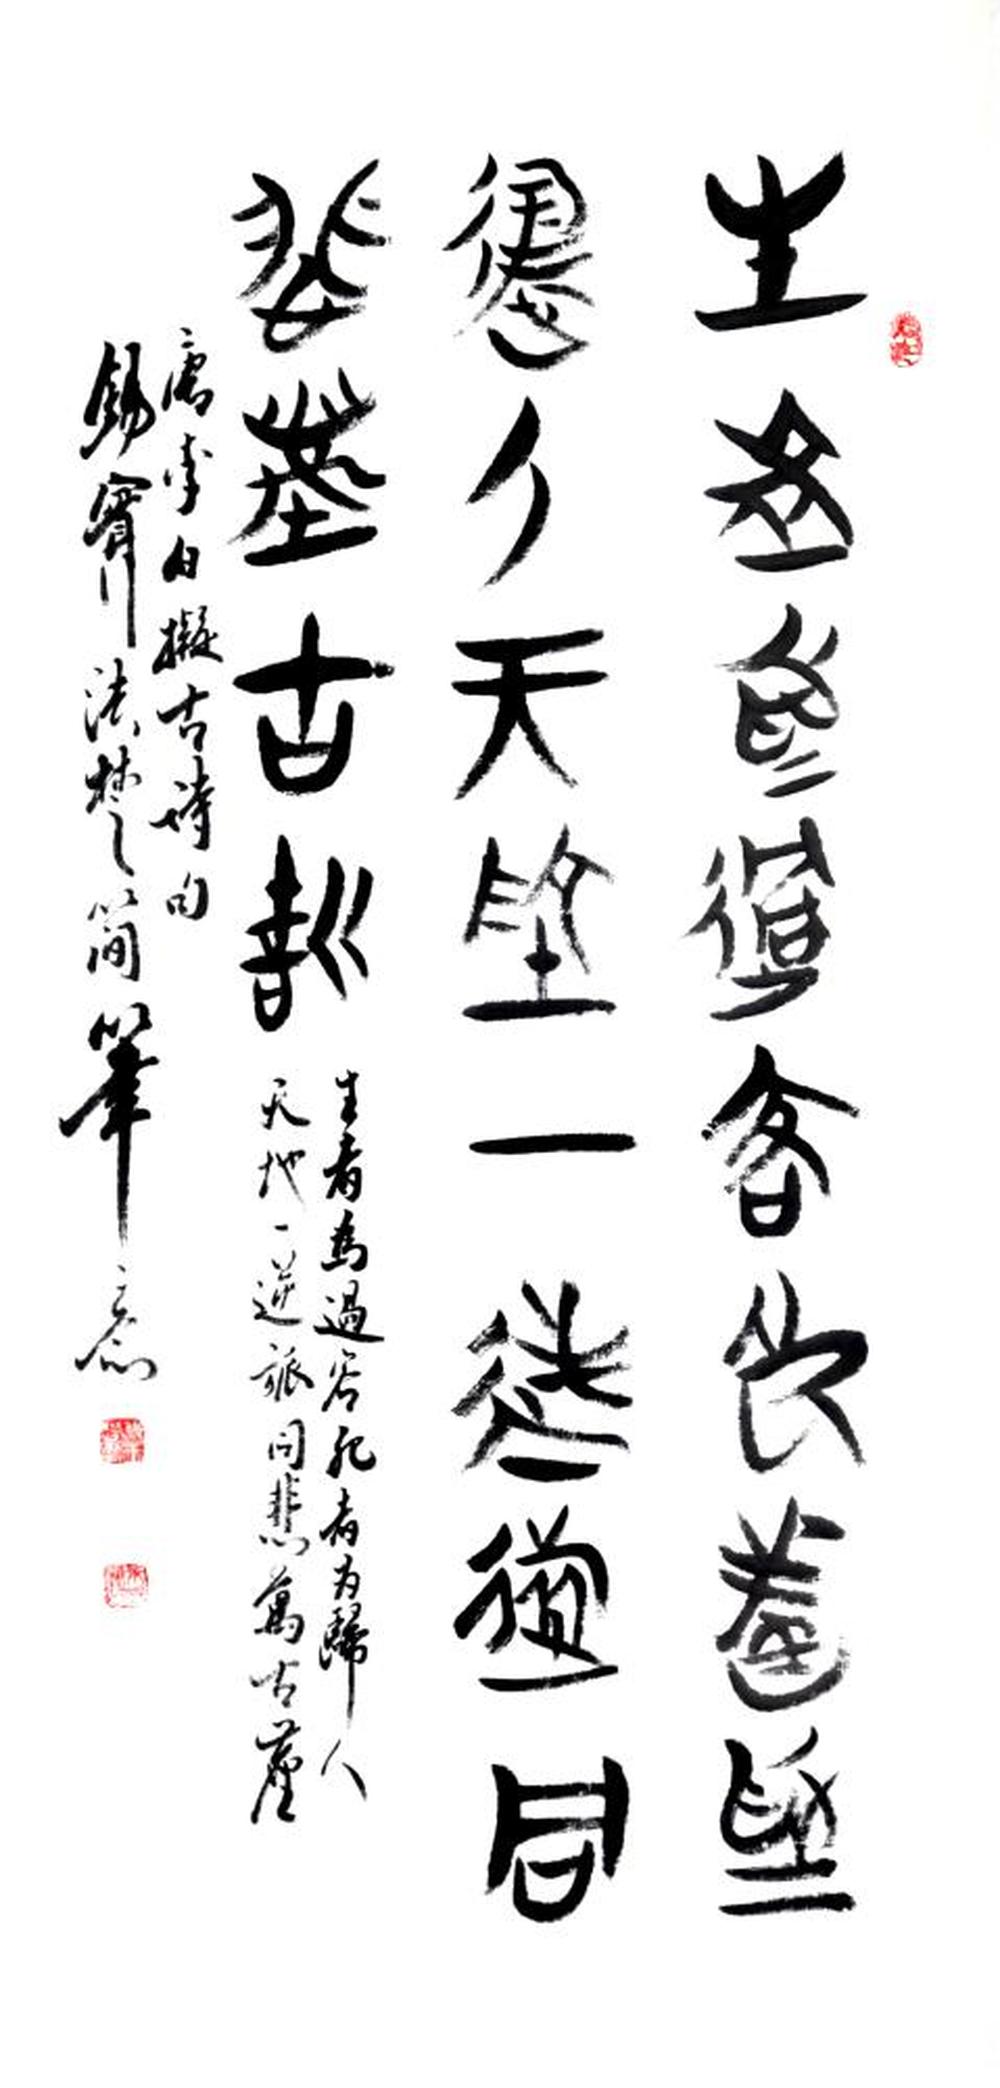 生者為過客死者為
歸人天地一逆旅同
悲萬古塵
生者為過客死者为歸人
天地一逆旅同悲萬古塵
唐李白擬古詩句
錫寶法楚簡筆意